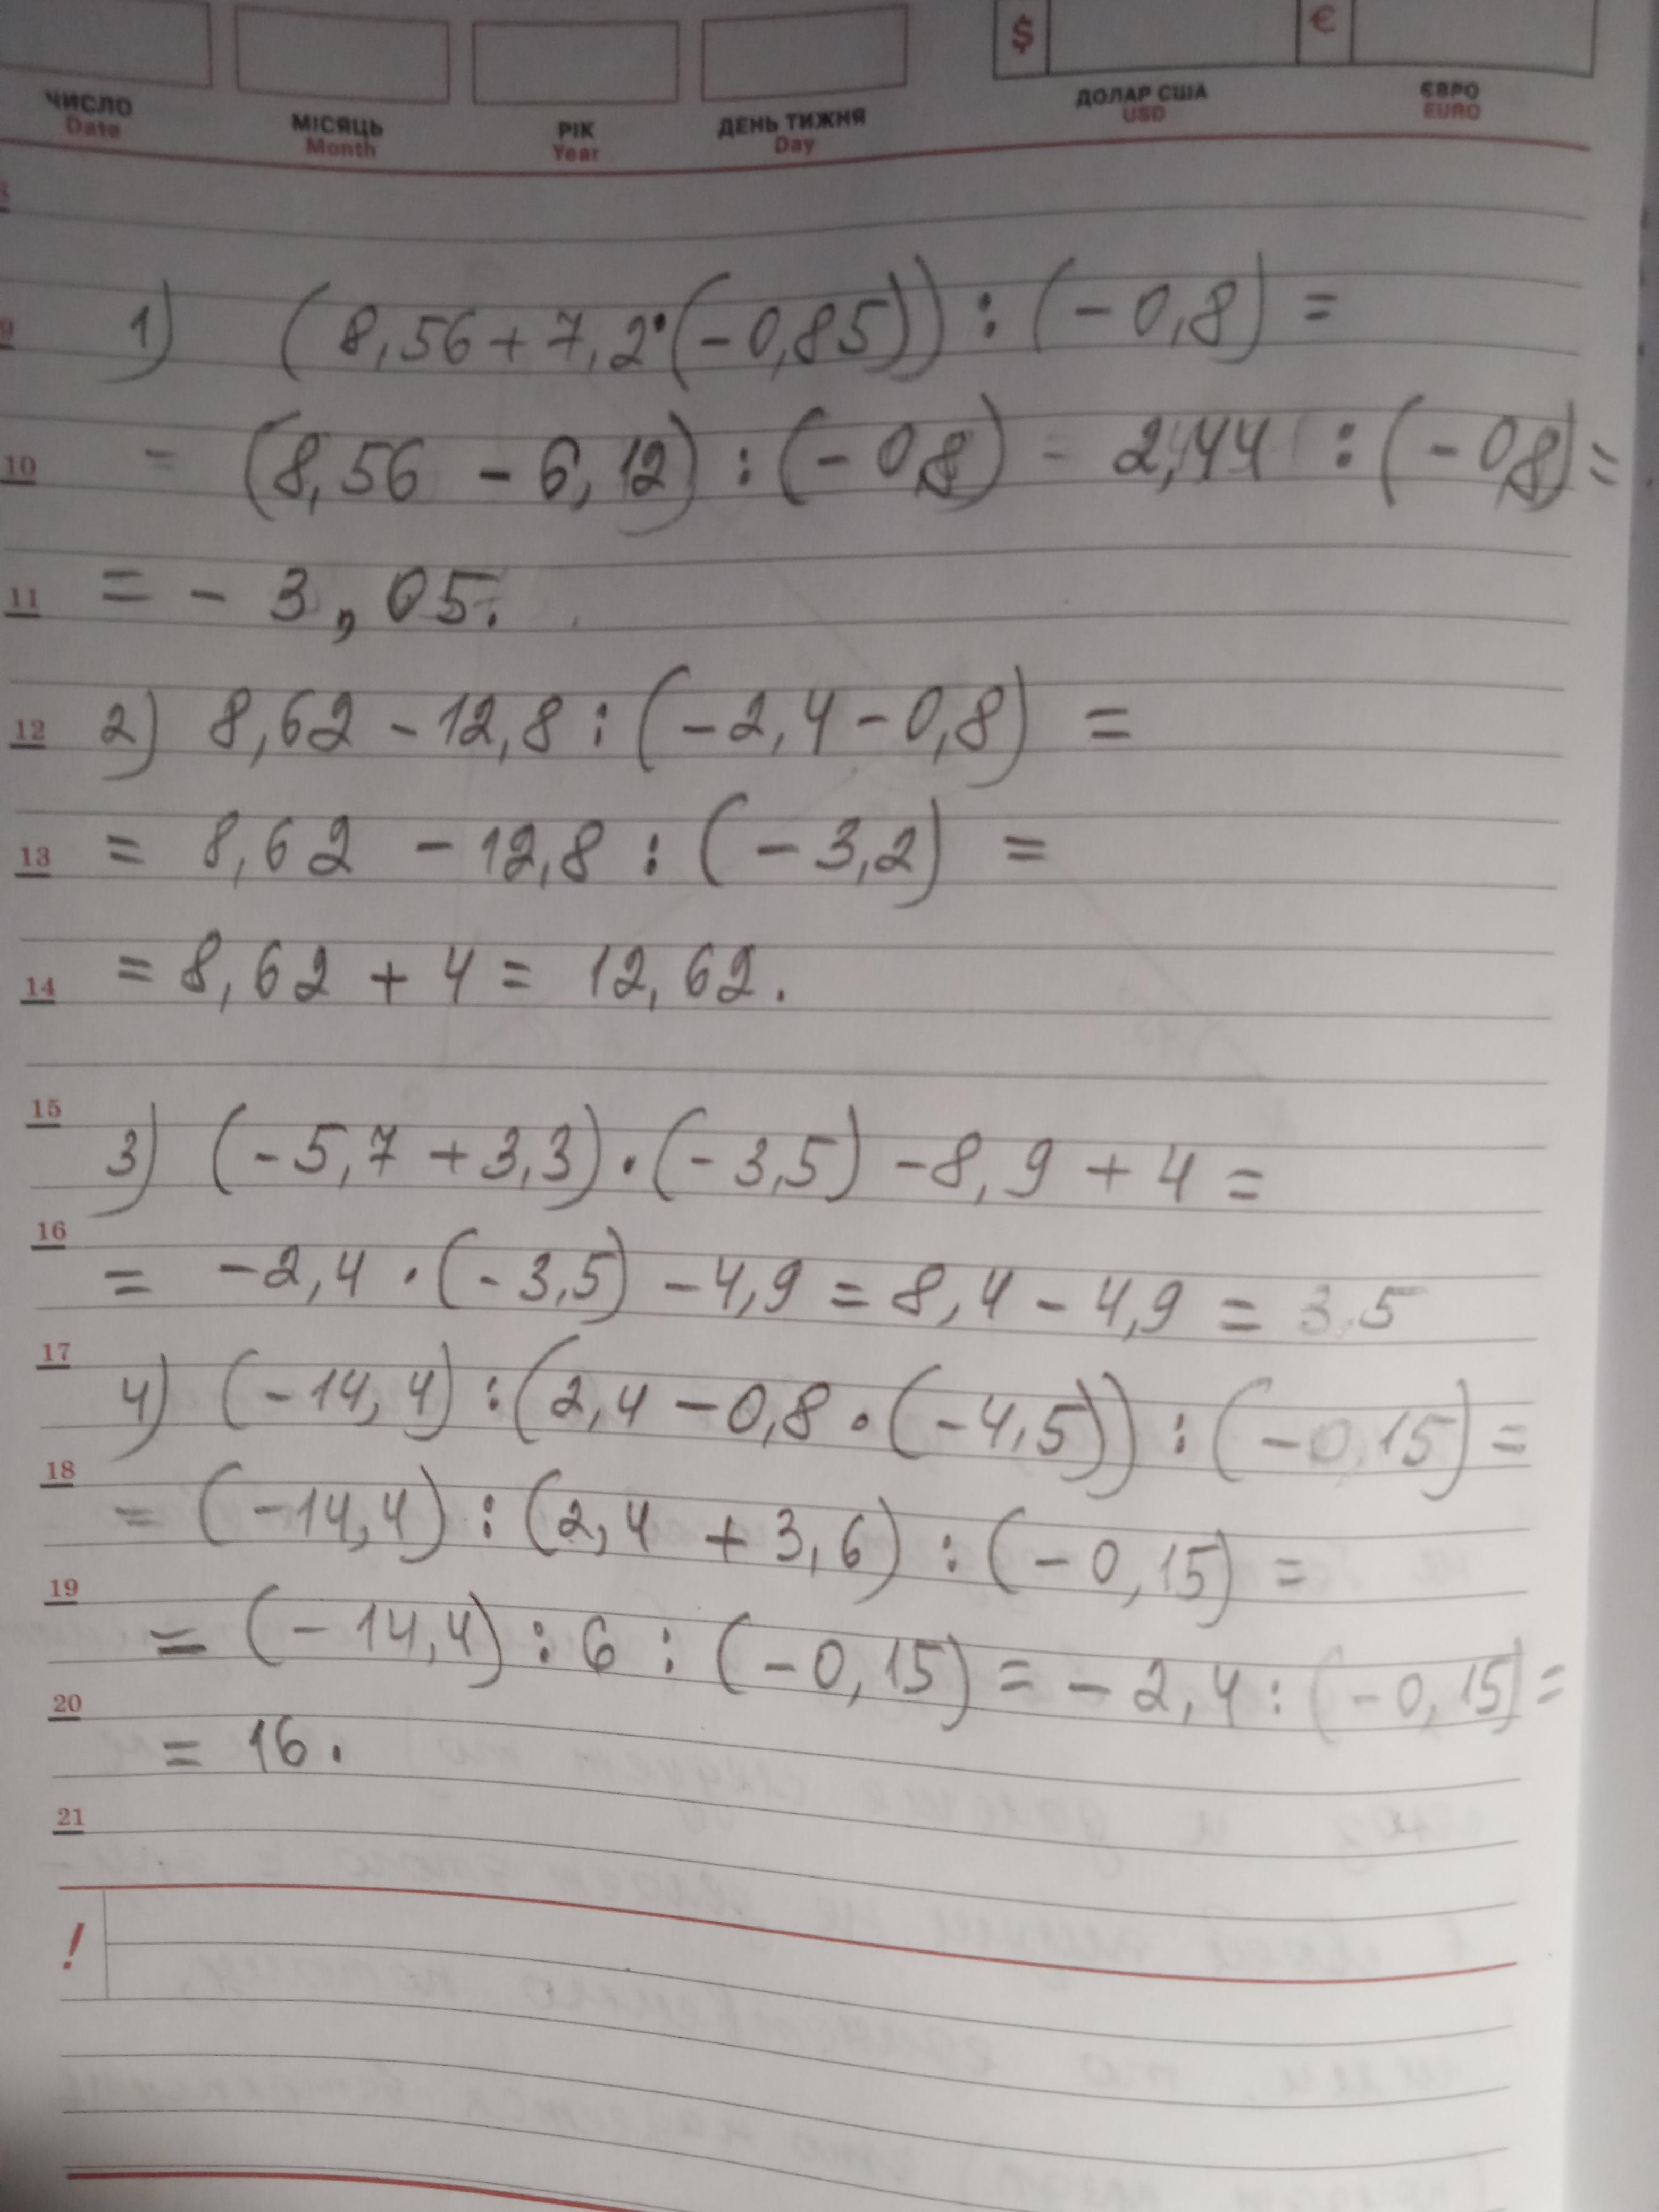 $ €
ЧИСЛО МІСЯЦЬ РІК ДЕНЬ ТИЖНЯ ДОЛАР США ЄВРО
Date Month Year Day USD EURO
8
9 1) (8,56+7,2·(-0,85)):(-0,8)=
10 = (8,56 - 6,12):(-0,8) = 2,44 :(-0,8)=
11 = - 3,05.
12 2) 8,62 - 12,8 : (-2,4-0,8) =
13 = 8,62 - 12,8 : (-3,2) =
14 = 8,62 + 4 = 12,62.
15 3) (-5,7 +3,3)·(-3,5) -8,9 + 4 =
16 = -2,4 · (-3,5) - 4,9 = 8,4 - 4,9 = 3,5
17 4) (-14,4) : (2,4 - 0,8 · (-4,5)) : (-0,15) =
18 = (-14,4) : (2,4 + 3,6) : (-0,15) =
19 = (-14,4) : 6 : (-0,15) = - 2,4 : (-0,15) =
20 = 16.
21
!